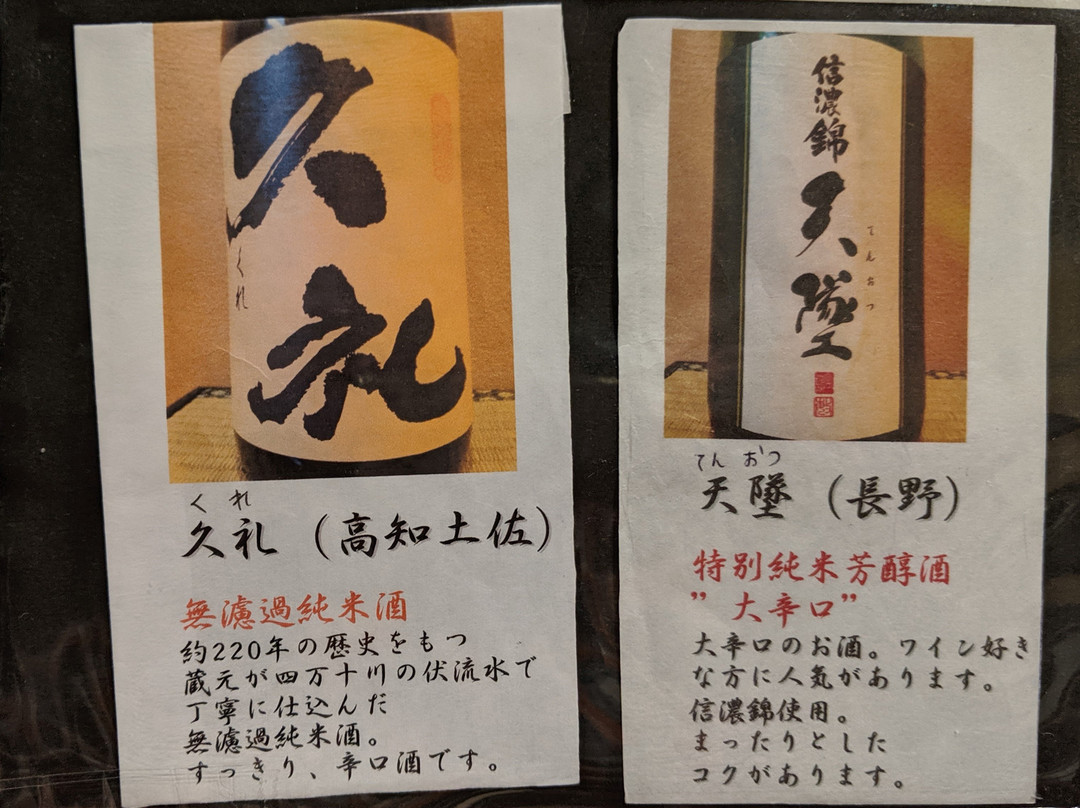 久礼
くれ
くれ
久礼（高知土佐）
無濾過純米酒
約220年の歴史をもつ
蔵元が四万十川の伏流水で
丁寧に仕込んだ
無濾過純米酒。
すっきり、辛口酒です。
信濃錦
天墜
てんおつ
てん おつ
天墜（長野）
特別純米芳醇酒
”大辛口”
大辛口のお酒。ワイン好き
な方に人気があります。
信濃錦使用。
まったりとした
コクがあります。